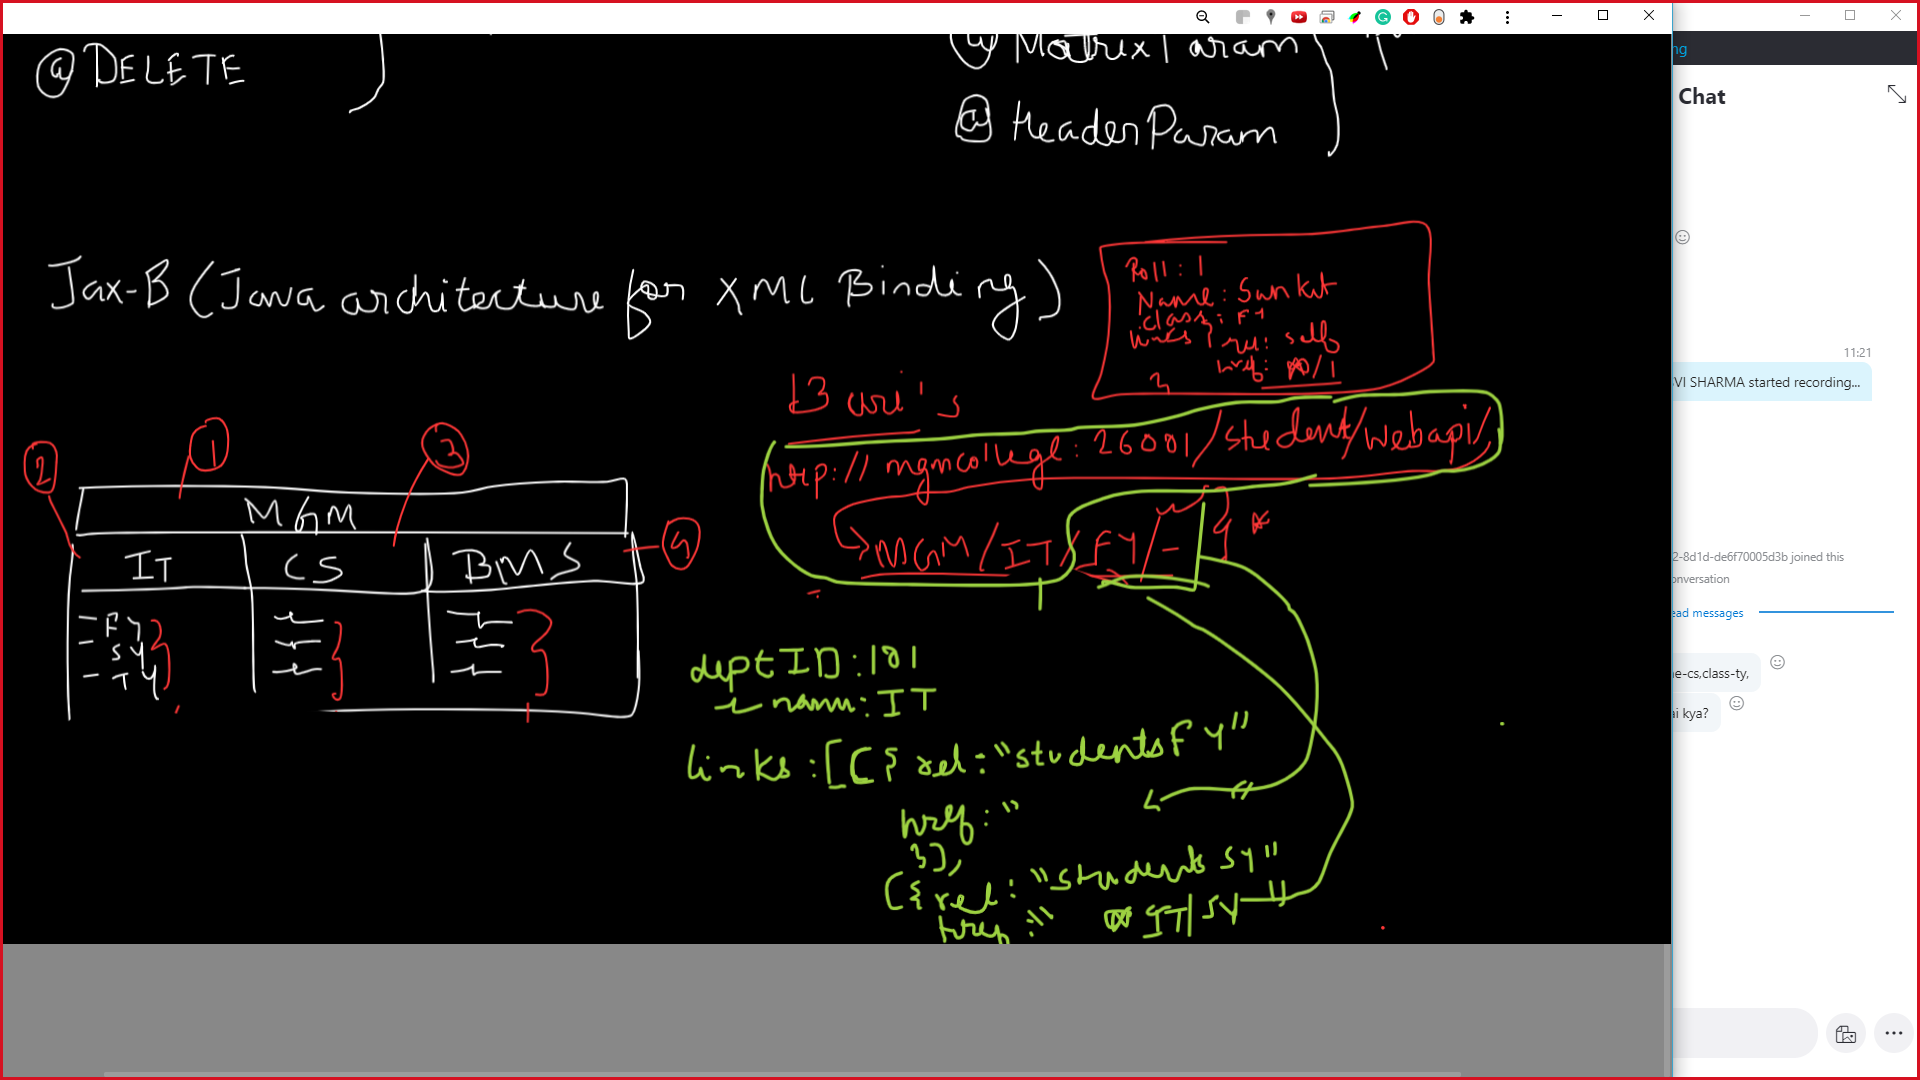 @DELETE
@MatrixParam
@HeaderParam
Jax-B (Java architecture for XML Binding)
Roll : 1
Name : Sankit
class : FY
links { rel: self
href: /1
}
http://mgmcollege:26001/student/webapi/
MGM/IT/FY/-
1
2
3
4
MGM
IT CS BMS
- FY
- SY
- TY
deptID:101
name:IT
links :[{ rel:"studentsFY"
href:"
}],
[{ rel:"students SY"
href:" IT/SY "
ng
Chat
11:21
VI SHARMA started recording...
2-8d1d-de6f70005d3b joined this
onversation
ead messages
e-cs,class-ty,
ai kya?